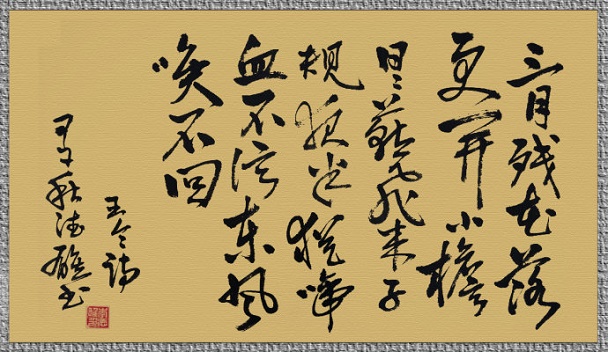 三月残花落
更开小檐
日日燕飞来子
规夜半犹啼
血不信东风
唤不回
王令诗
秋德书